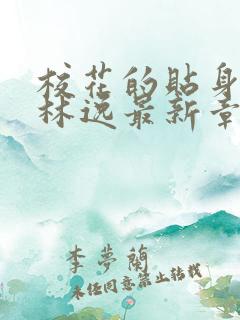 校花的贴身
林逸最新章
李梦兰
未经同意禁止转载